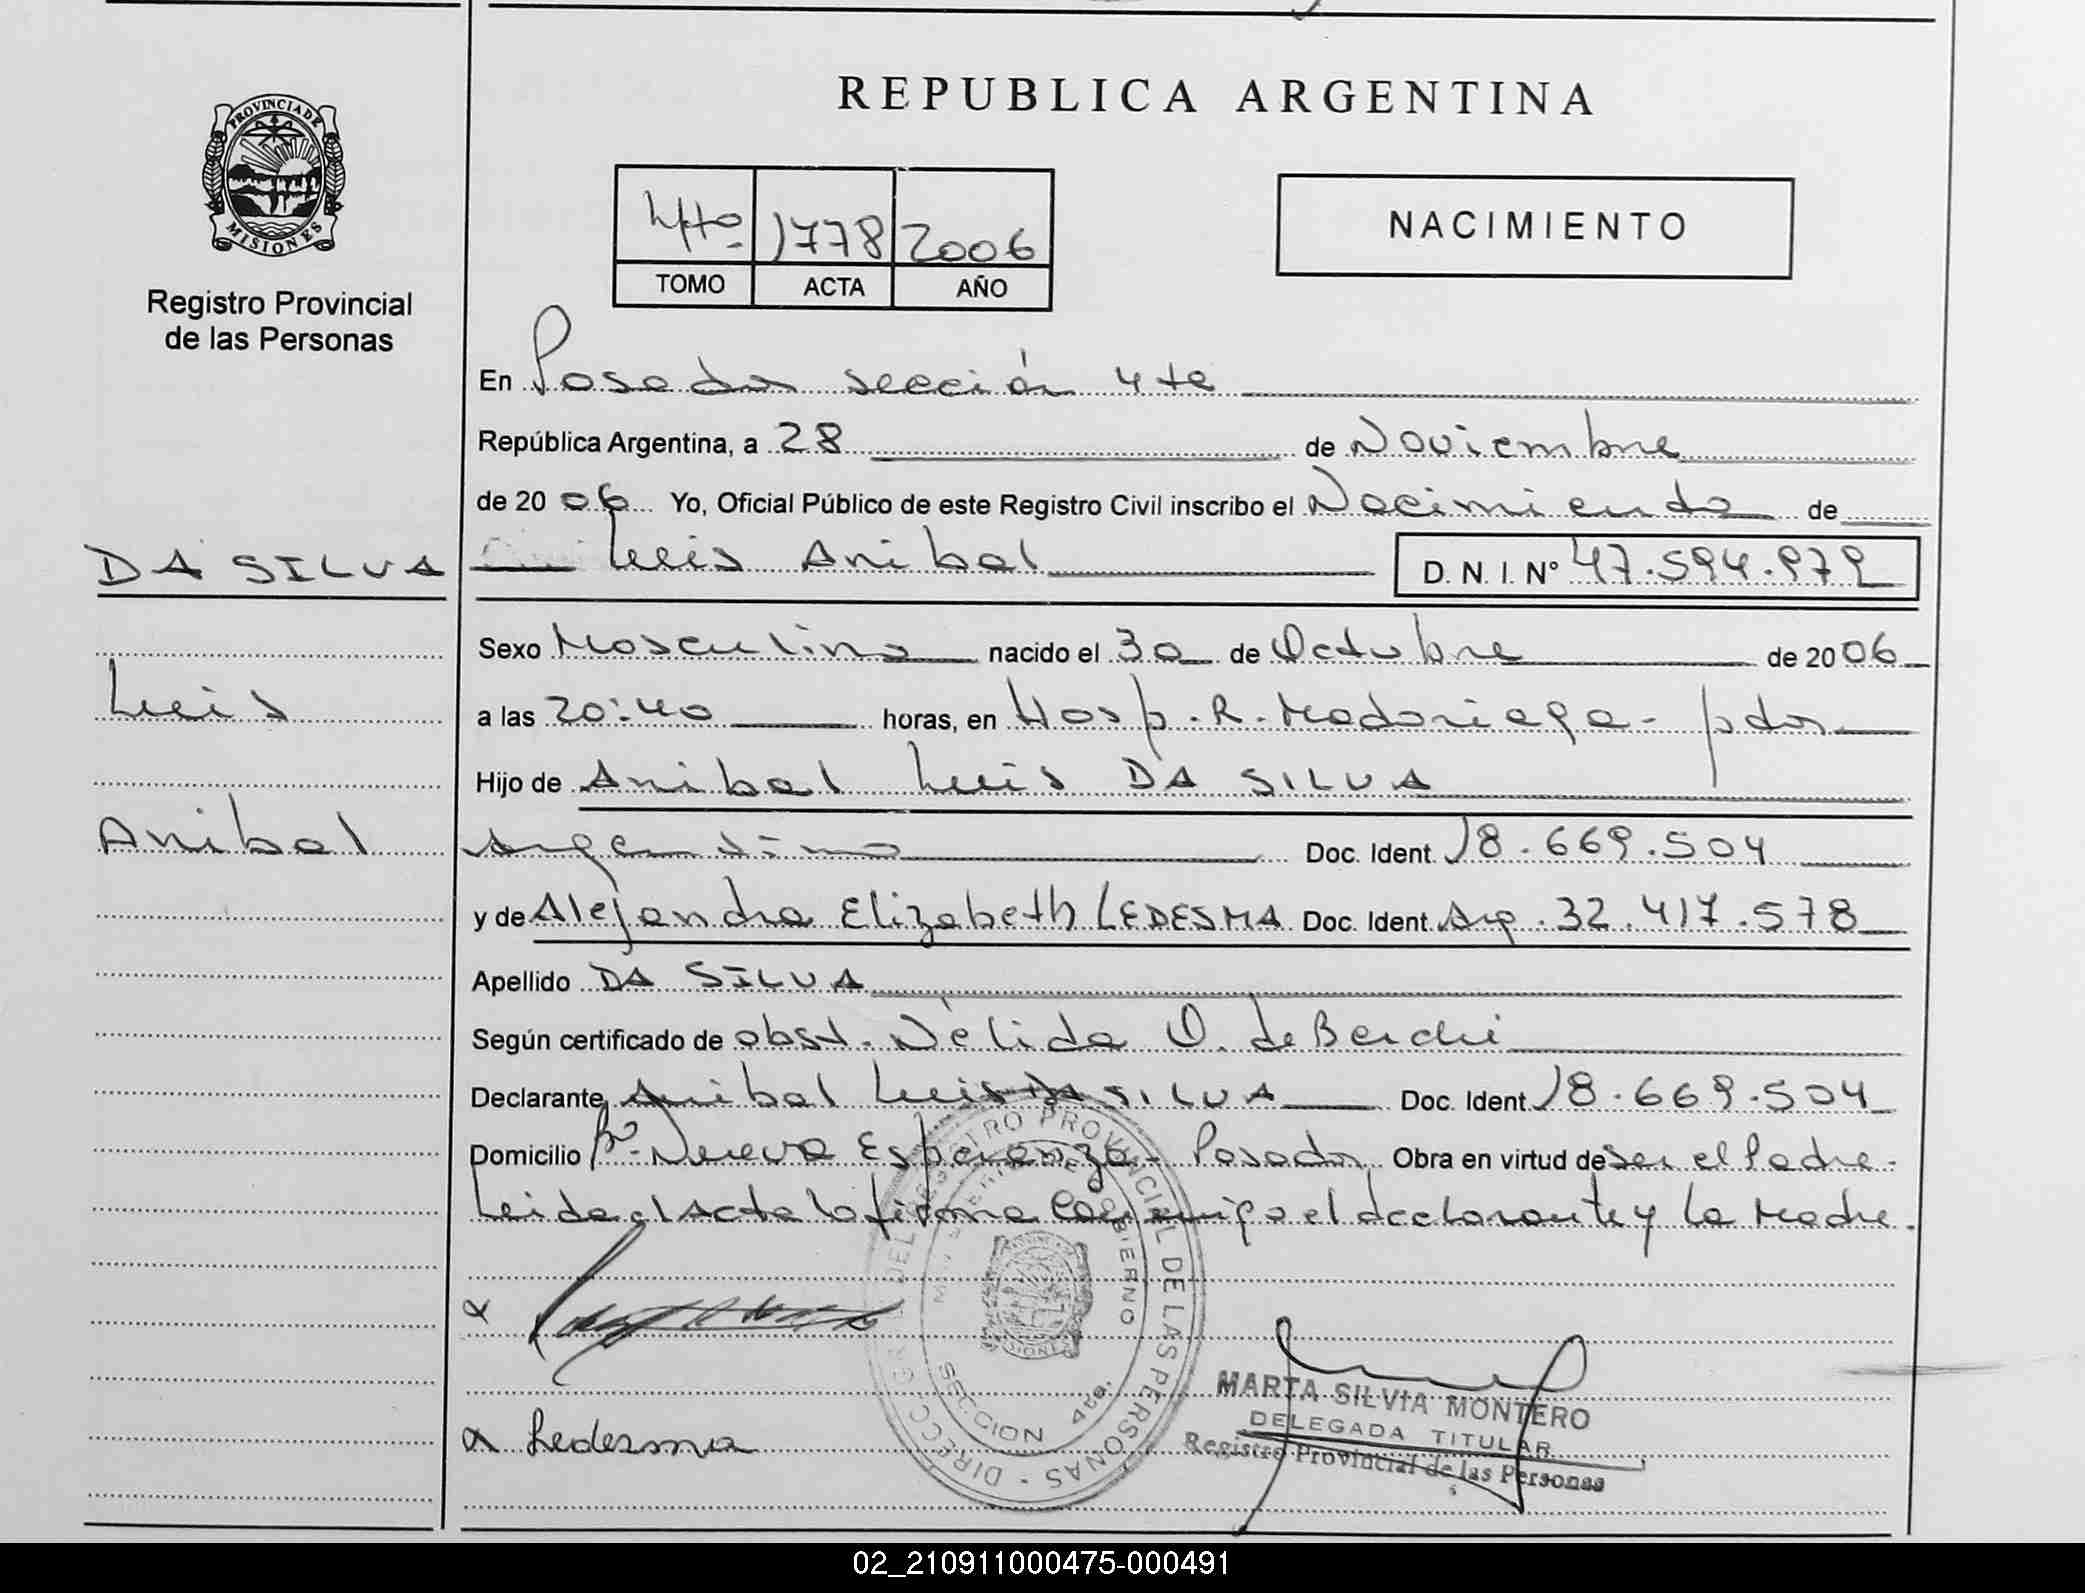 REPUBLICA ARGENTINA
PROVINCIA DE
MISIONES
Registro Provincial
de las Personas
4to 1778 2006
TOMO ACTA AÑO
NACIMIENTO
En Posadas sección 4ta
República Argentina, a 28 de Noviembre
de 2006 Yo, Oficial Público de este Registro Civil inscribo el Nacimiento de
DA SILVA
Luis Anibal D. N. I. Nº 47.594.979
Sexo Masculino nacido el 30 de Octubre de 2006
Luis
a las 20:40 horas, en Hosp. R. Madariaga - pdas
Hijo de Anibal Luis DA SILVA
Anibal
Argentino Doc. Ident. 18.669.504
y de Alejandra Elizabeth LEDESMA Doc. Ident. Arg. 32.417.578
Apellido DA SILVA
Según certificado de obst. Nélida O. de
Declarante Anibal Luis DA SILVA Doc. Ident. 18.669.504
Domicilio Bº Nueva Esperanza - Posadas Obra en virtud de ser el Padre.
Leida el Acta la firma conmigo el declarante y la Madre.
DIRECC GRAL DEL REGISTRO PROVINCIAL DE LAS PERSONAS
MINISTERIO DE GOBIERNO
MISIONES
SECCION 4ta.
Ledesma
MARTA SILVIA MONTERO
DELEGADA TITULAR
Registro Provincial de las Personas
02_210911000475-000491